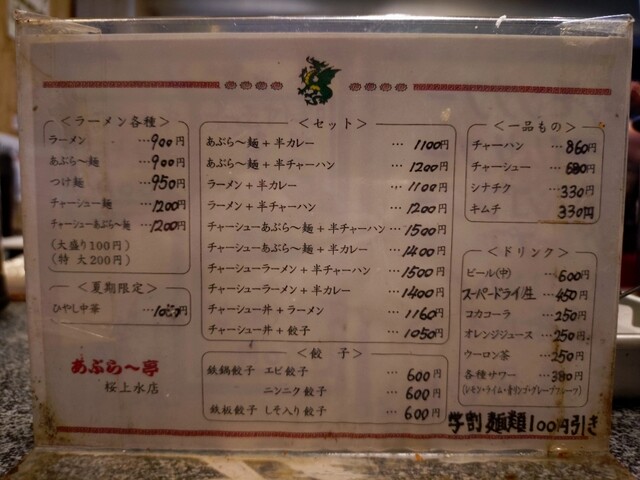 ＜ラーメン各種＞
ラーメン …900円
あぶら〜麺 …900円
つけ麺 …950円
チャーシュー麺 …1200円
チャーシューあぶら〜麺 …1200円
(大盛り100円)
(特 大200円)
＜夏期限定＞
ひやし中華
あぶら〜亭
桜上水店
＜セット＞
あぶら〜麺＋半カレー … 1100円
あぶら〜麺＋半チャーハン … 1200円
ラーメン＋半カレー … 1100円
ラーメン＋半チャーハン … 1200円
チャーシューあぶら〜麺＋半チャーハン … 1500円
チャーシューあぶら〜麺＋半カレー … 1400円
チャーシューラーメン＋半チャーハン … 1500円
チャーシューラーメン＋半カレー … 1400円
チャーシュー丼＋ラーメン … 1160円
チャーシュー丼＋餃子 … 1050円
＜餃 子＞
鉄鍋餃子 エビ餃子 … 600円
ニンニク餃子 … 600円
鉄板餃子 しそ入り餃子 … 600円
＜一品もの＞
チャーハン … 860円
チャーシュー …
シナチク … 330円
キムチ … 330円
＜ドリンク＞
ビール(中) …600円
スーパードライ生 …450円
コカコーラ …250円
オレンジジュース …250円
ウーロン茶 …250円
各種サワー …380円
(レモン・ライム・青リンゴ・グレープフルーツ)
学割 麺類100円引き